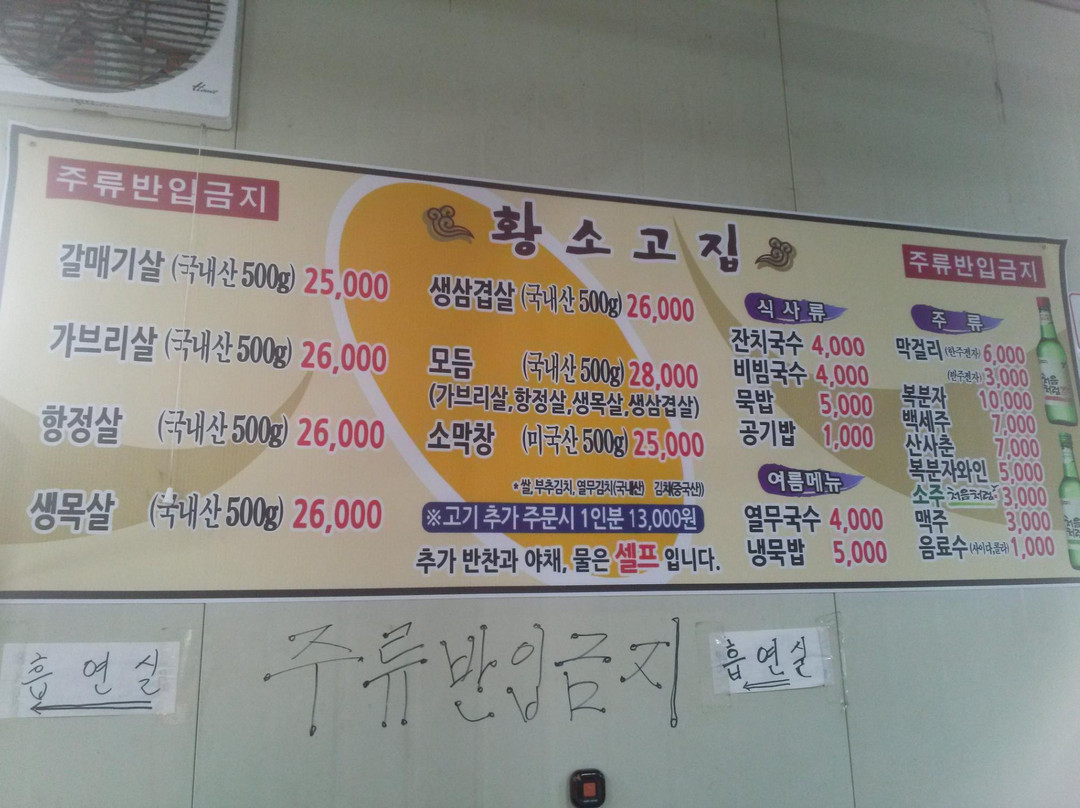 주류반입금지
황소고집
주류반입금지
갈매기살 (국내산 500g) 25,000
가브리살 (국내산 500g) 26,000
항정살 (국내산 500g) 26,000
생목살 (국내산 500g) 26,000
생삼겹살 (국내산 500g) 26,000
모듬 (국내산 500g) 28,000
(가브리살,항정살,생목살,생삼겹살)
소막창 (미국산 500g) 25,000
*쌀,부추김치,열무김치(국내산) 김치(중국산)
※고기 추가 주문시 1인분 13,000원
추가 반찬과 야채, 물은 셀프 입니다.
식사류
잔치국수 4,000
비빔국수 4,000
묵밥 5,000
공기밥 1,000
여름메뉴
열무국수 4,000
냉묵밥 5,000
주류
막걸리 (한주전자) 6,000
(반주전자) 3,000
복분자 10,000
백세주 7,000
산사춘 7,000
복분자와인 5,000
소주 처음처럼 3,000
맥주 3,000
음료수 (사이다,콜라) 1,000
처음처럼
흡연실
주류반입금지
흡연실